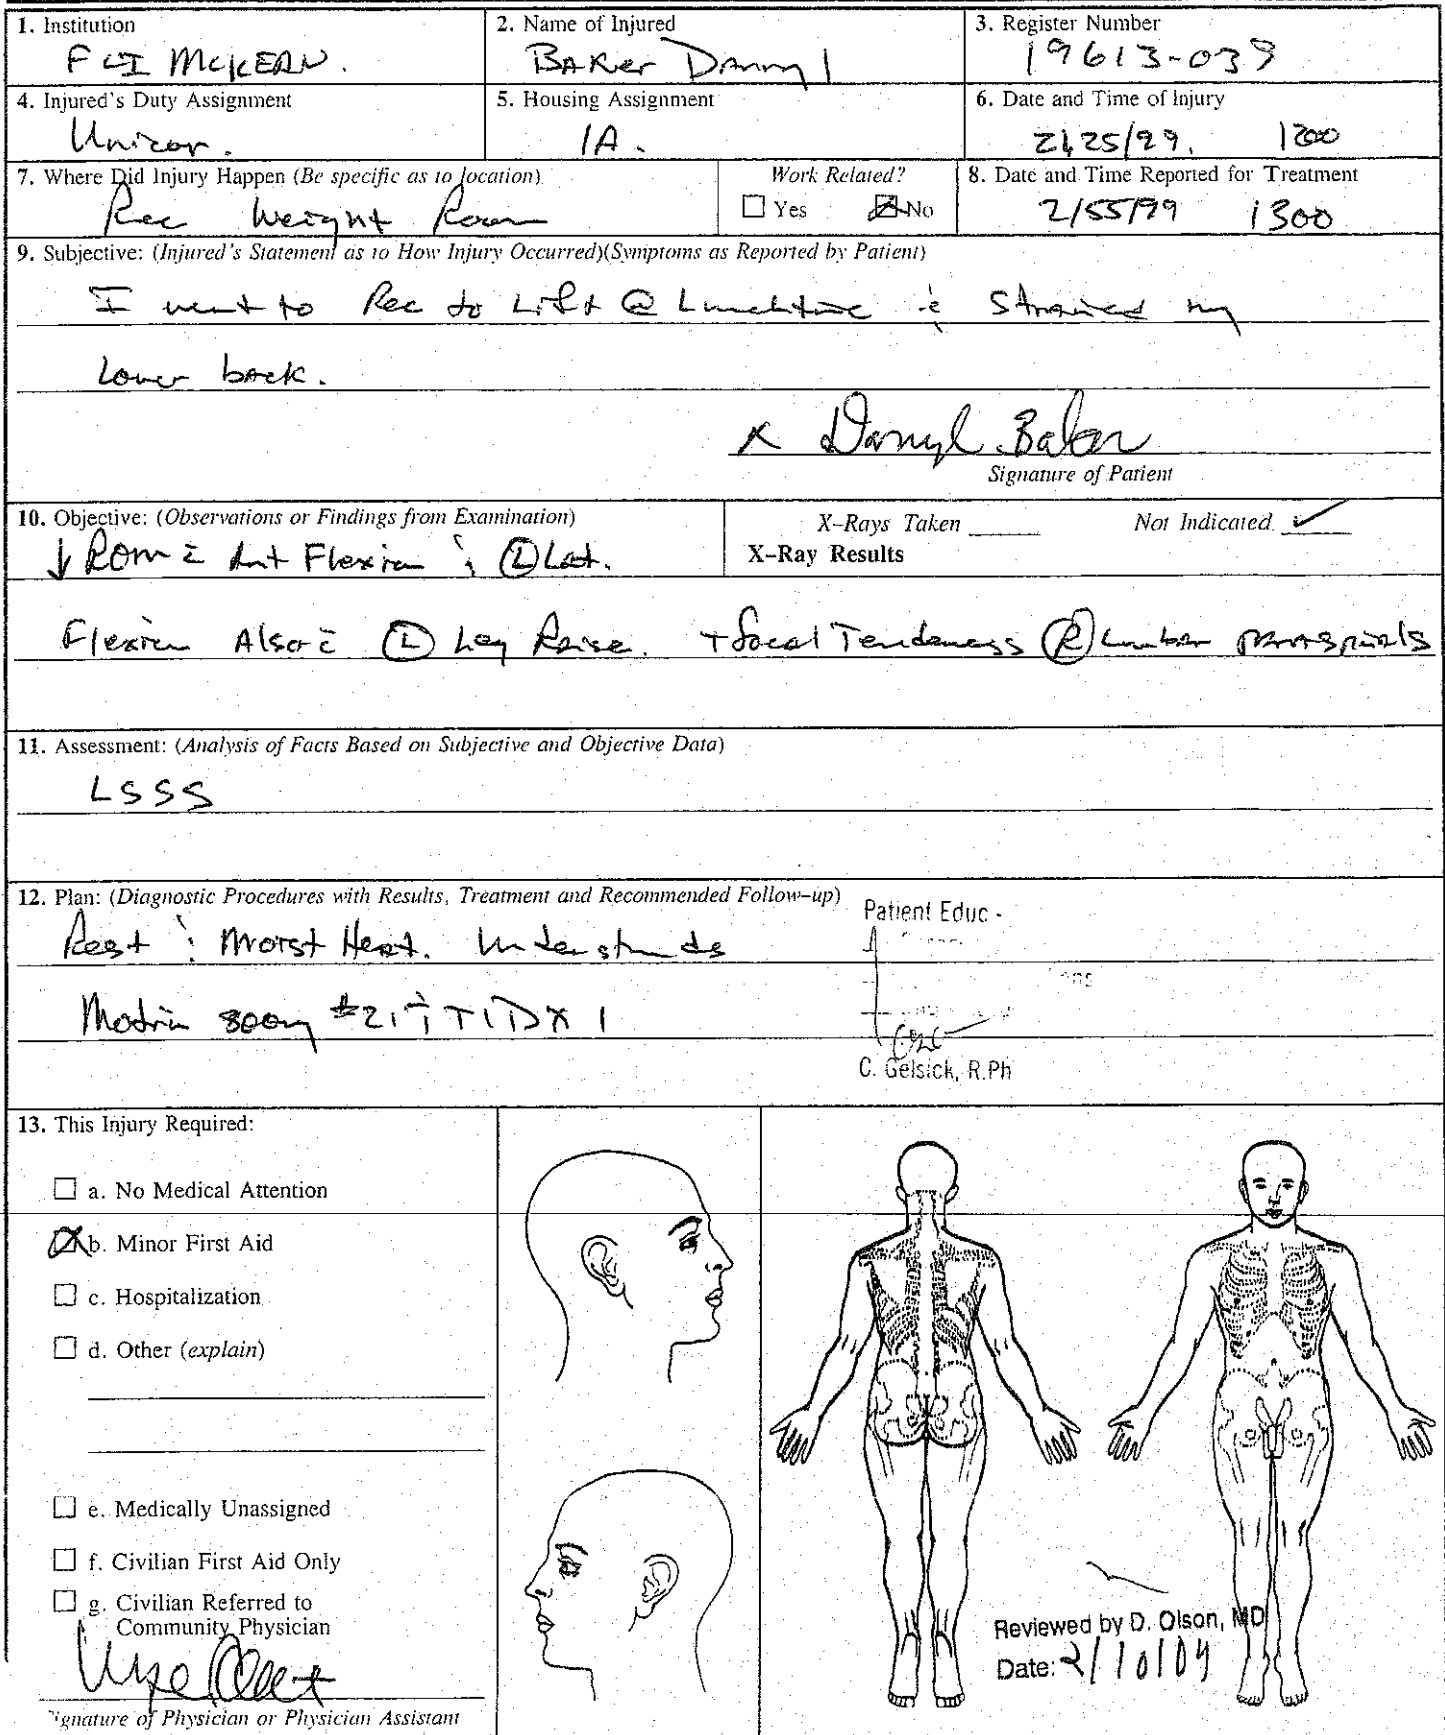 1. Institution
FCI McKEAN.
2. Name of Injured
BAKER Darryl
3. Register Number
19613-039
4. Injured's Duty Assignment
Unicor.
5. Housing Assignment
1A.
6. Date and Time of Injury
2/25/99. 1200
7. Where Did Injury Happen (Be specific as to location)
Rec Weight Room
Work Related?
Yes No
8. Date and Time Reported for Treatment
2/55/99 1300
9. Subjective: (Injured's Statement as to How Injury Occurred)(Symptoms as Reported by Patient)
I went to Rec to Lift @ Lunchtime & Strained my
Lower back.
x Darryl Baker
Signature of Patient
10. Objective: (Observations or Findings from Examination)
↓ ROM c̄ Ant Flexion & Ⓛ Lat.
X-Rays Taken Not Indicated ✓
X-Ray Results
Flexion Also c̄ Ⓛ Leg Raise. + focal Tenderness Ⓡ Lumbar paraspinals
11. Assessment: (Analysis of Facts Based on Subjective and Objective Data)
LSSS
12. Plan: (Diagnostic Procedures with Results, Treatment and Recommended Follow-up)
Patient Educ -
Rest & Moist Heat. Understands
Motrin 800mg #21 ṫ TID X 1
C. Gelsick, R.Ph
13. This Injury Required:
a. No Medical Attention
b. Minor First Aid
c. Hospitalization
d. Other (explain)
e. Medically Unassigned
f. Civilian First Aid Only
g. Civilian Referred to
Community Physician
Signature of Physician or Physician Assistant
Reviewed by D. Olson, MD
Date: 2/10/04